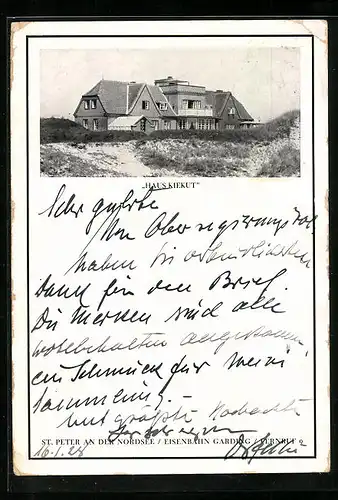 „HAUS KIEKUT"
Sehr geehrter
Herr Oberregierungsrat
haben Sie verbindlichsten
Dank für den Brief.
Die Marken sind alle
wohlbehalten angekommen
ein Schmuck für meine
Sammlung. –
Mit größter Hochacht.
ST. PETER AN DER NORDSEE / EISENBAHN GARDING / FERNRUF 9
16.1.28